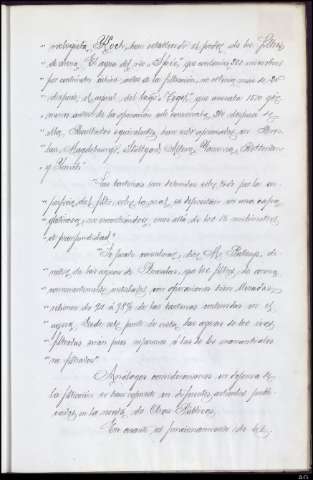 " Koch, han establecido el poder de los filtros
" de arena. El agua del río "Spree" que contenía microbios
" por centímetro cúbico antes de la filtración, no tenía más de
" después; el agua del lago "Tegel", que
" antes de la operación solo conservaba después de
" ella. Resultados equivalentes han sido obtenidos en
" Magdebourgo, Stuttgard, Altona, Varsovia, Rotterdam
" y Zurich."
"Las bacterias son detenidas sobre todo por la su-
" perficie del filtro sobre la cual se depositan en una capa
" gelatinosa, no encontrándose más allá de los milímetros
" de profundidad."
"Se puede considerar, dice Mr. di-
" rector de las aguas de que los filtros de arena
" convenientemente instalados, con operaciones bien llevadas,
" retienen de 98% de las bacterias contenidas en el
" agua. Bajo este punto de vista, las aguas de los ríos
" filtradas son poco inferiores a las de los manantiales
" no filtrados."
Análogas consideraciones en defensa de
la filtración se han expuesto en diferentes artículos publi-
cados en la revista de Obras Públicas.
En cuanto al funcionamiento de los